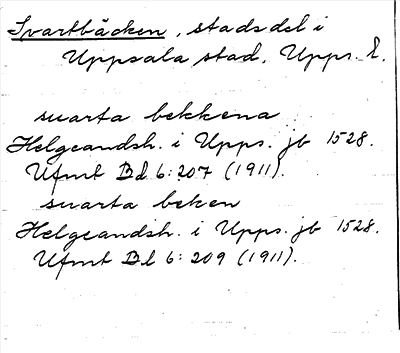 Svartbäcken, stadsdel i
Uppsala stad, Upps. l.
suarta bekkena
Helgeandsh. i Upps. jb 1528.
Ufmt Bd 6:207 (1911).
suarta beken
Helgeandsh. i Upps. jb 1528.
Ufmt Bd 6:209 (1911).